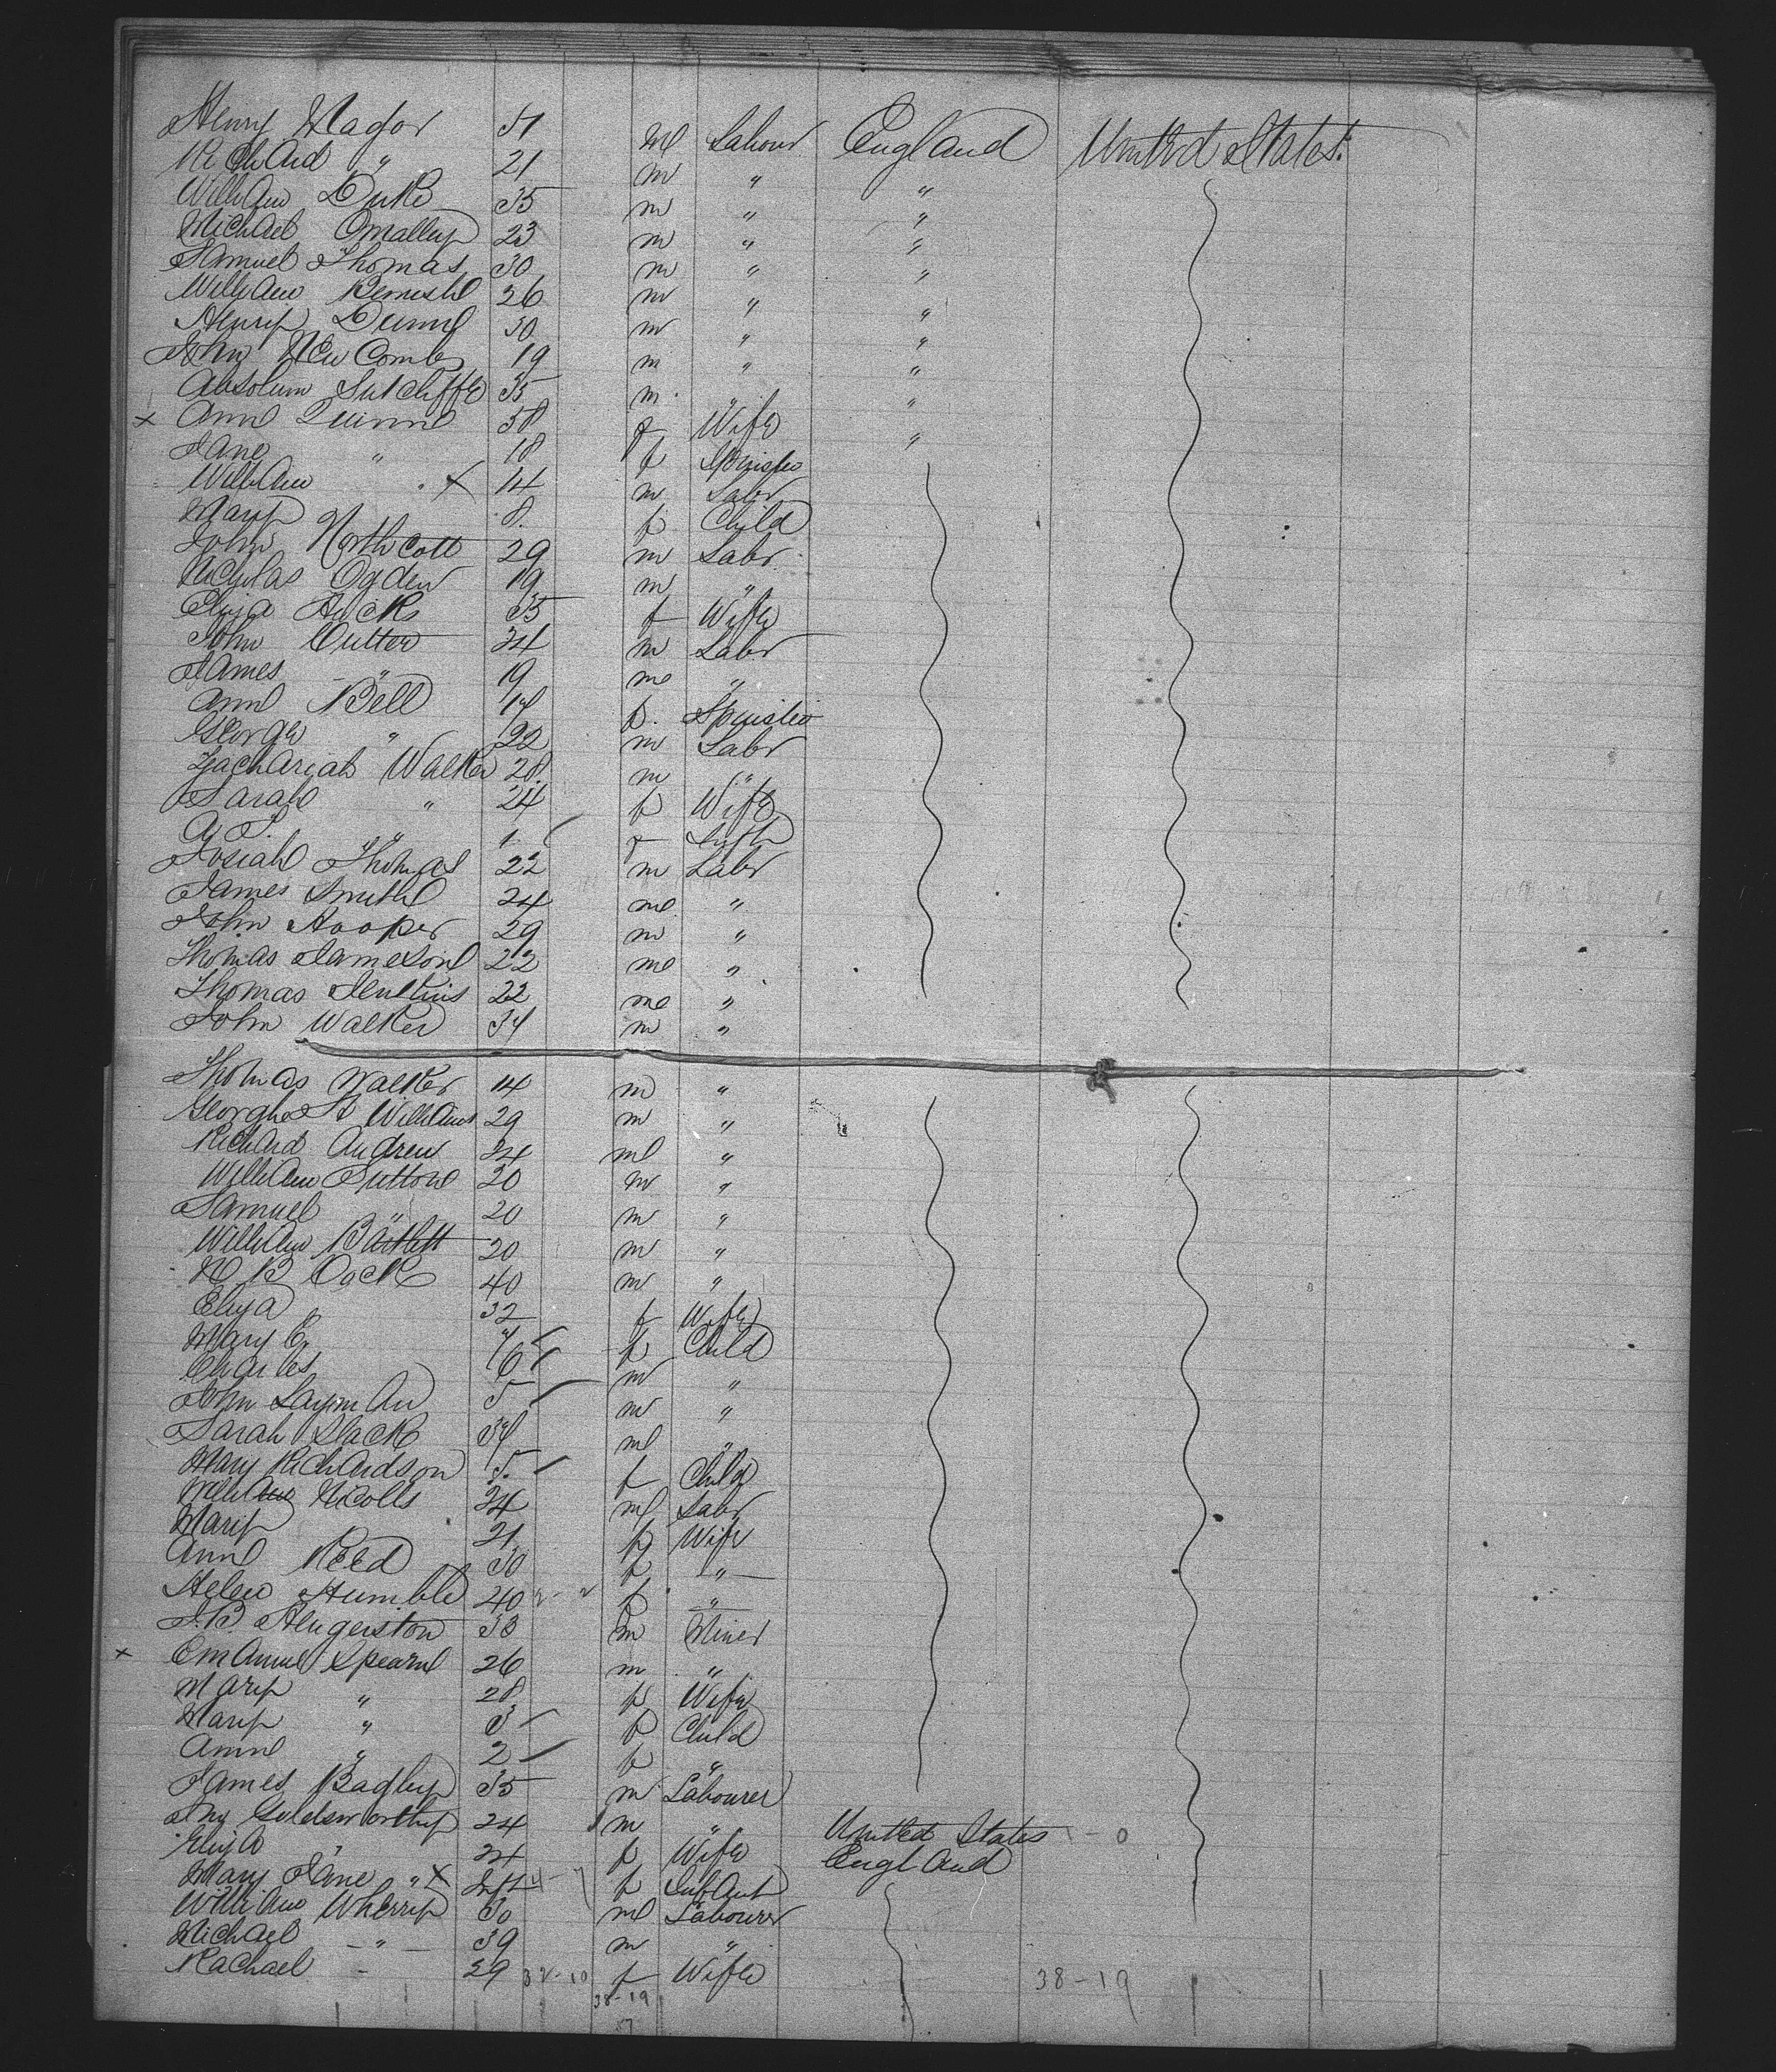 Henry Magor 51 m Labour England United States
Richard " 21 m " "
William Duke 35 m " "
Michael Omalley 23 m " "
Samuel Thomas 30 m " "
William 26 m " "
Henry Dunn 30 m " "
John NewComb 19 m " "
Absolum Sutcliffe 35 m " "
x Ann Quinn 38 f Wife "
Jane " 18 f Spinster
William " x 14 m Labr
Mary 8 f Child
John Northcott 29 m Labr
Nicholas Ogden 19 m "
Eliza Hicks 35 f Wife
John Cutter 34 m Labr
James " 19 m "
Ann Bell 17 f Spinster
George " 22 m Labr
Zachariah Walker 28 m "
Sarah " 24 f Wife
" 1 f Infth
Josiah Thomas 22 m Labr
James Smith 24 m "
John Hooper 29 m "
Thomas Jameson 22 m "
Thomas Jenkins 22 m "
John Walker 34 m "
Thomas Walker 14 m "
George H Williams 29 m "
Richard Andrew 24 m "
William Sutton 20 m "
Samuel " 20 m "
William Bartlett 20 m "
B Cock 40 m "
Eliza 32 f Wife
Mary E 7 f Child
Charles 6 m "
John Layman 5 m "
Sarah Slack 34 m "
Mary Richardson 5 f Child
William Nicolls 24 m Labr
Mary 21 f Wife
Ann Reed 30 f "
Helen Humble 40 f "
J.B. Hengerston 33 m Miner
x Emanuel Spearn 26 m "
Mary " 28 f Wife
Mary " 3 f Child
Ann " 2 f "
James Bagley 35 m Labourer
Jno Goldsworthy 24 m " United States 1-0
Eliza " 24 f Wife England
Mary Jane " x Inft f Infant
William Wherry 30 m Labourer
Michael " 39 m "
Rachael - 29 f Wife 38-19
38-19
57